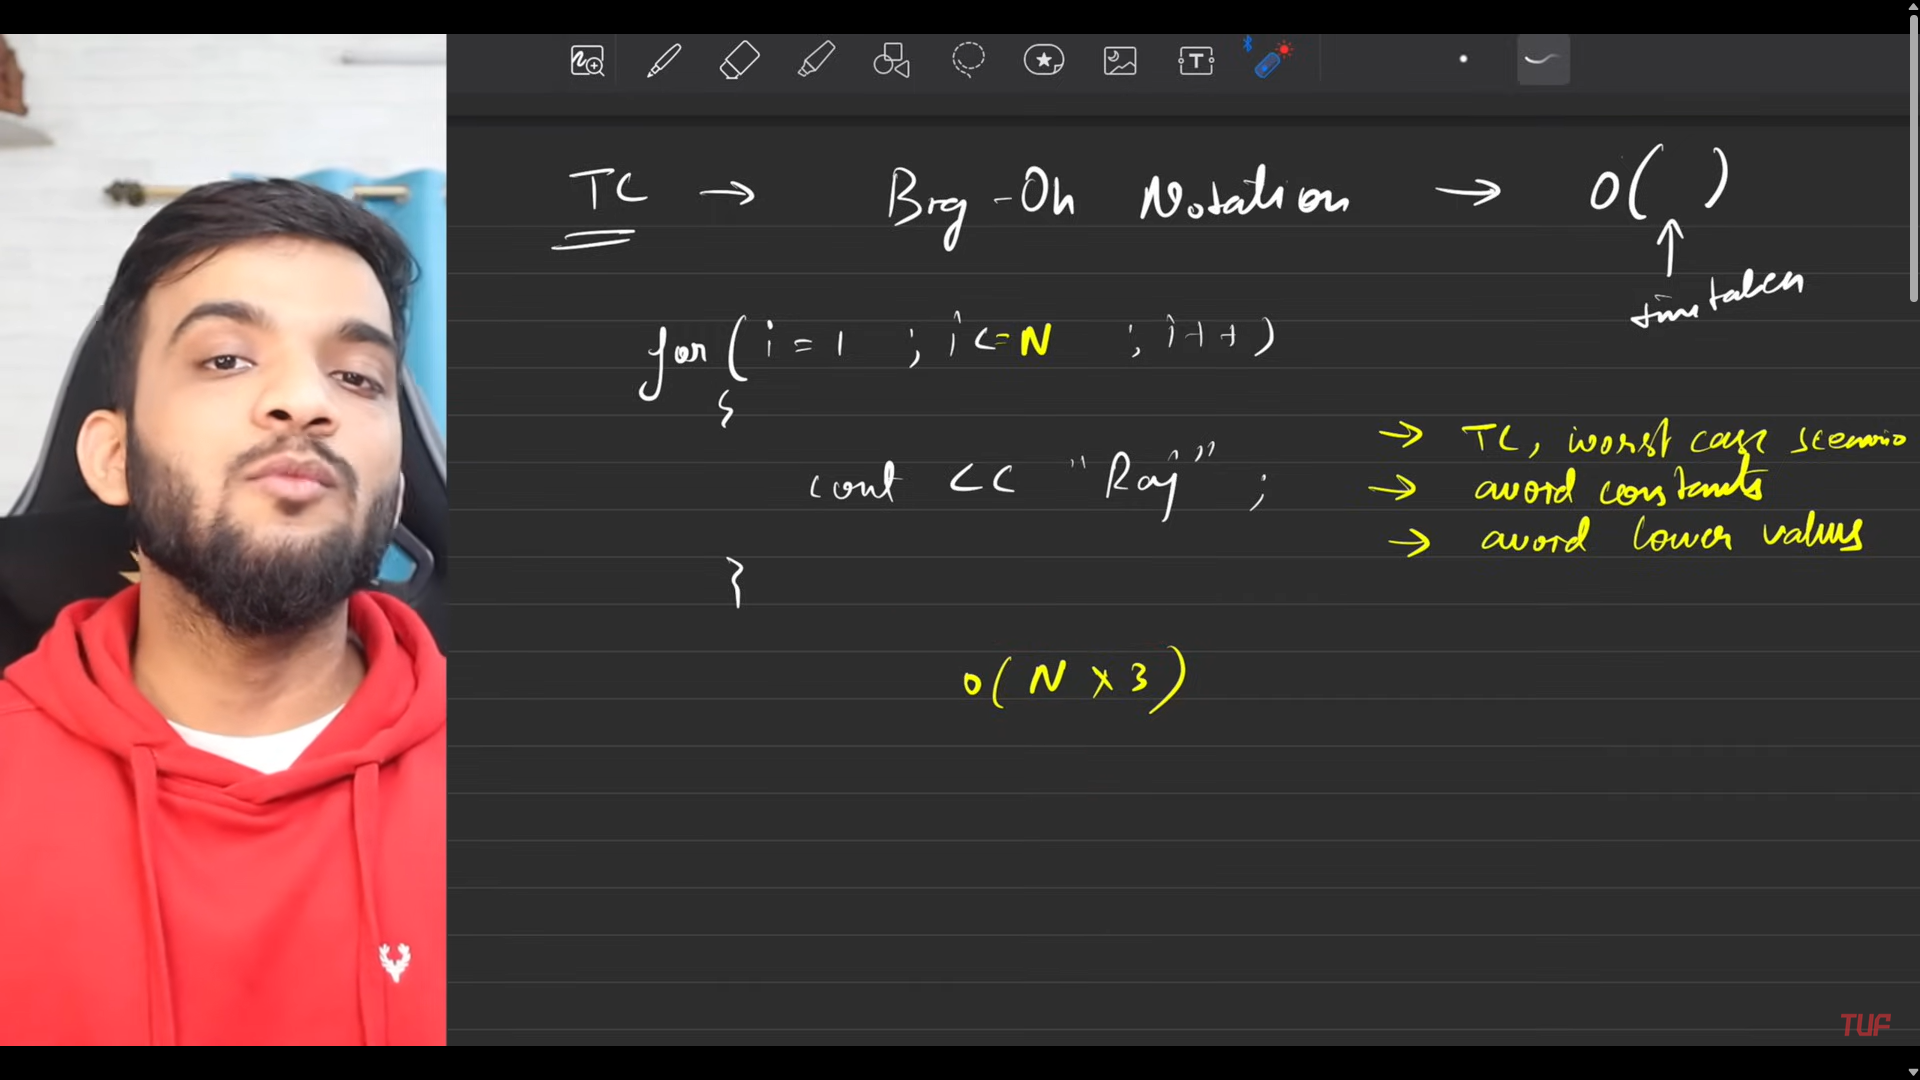 TC → Big-Oh Notation → O( )
↑
time taken
for( i = 1 ; i <= N ; i++ )
{
→ TC, worst case scenario
cout << "Raj" ;
→ avoid constants
→ avoid lower values
}
O( N x 3 )
TUF